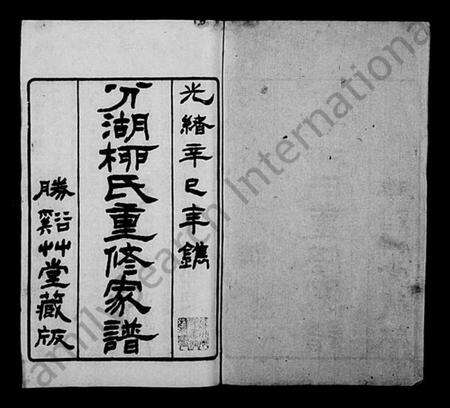 光緒辛巳年鐫
分湖柳氏重修家譜
勝谿艸堂藏版